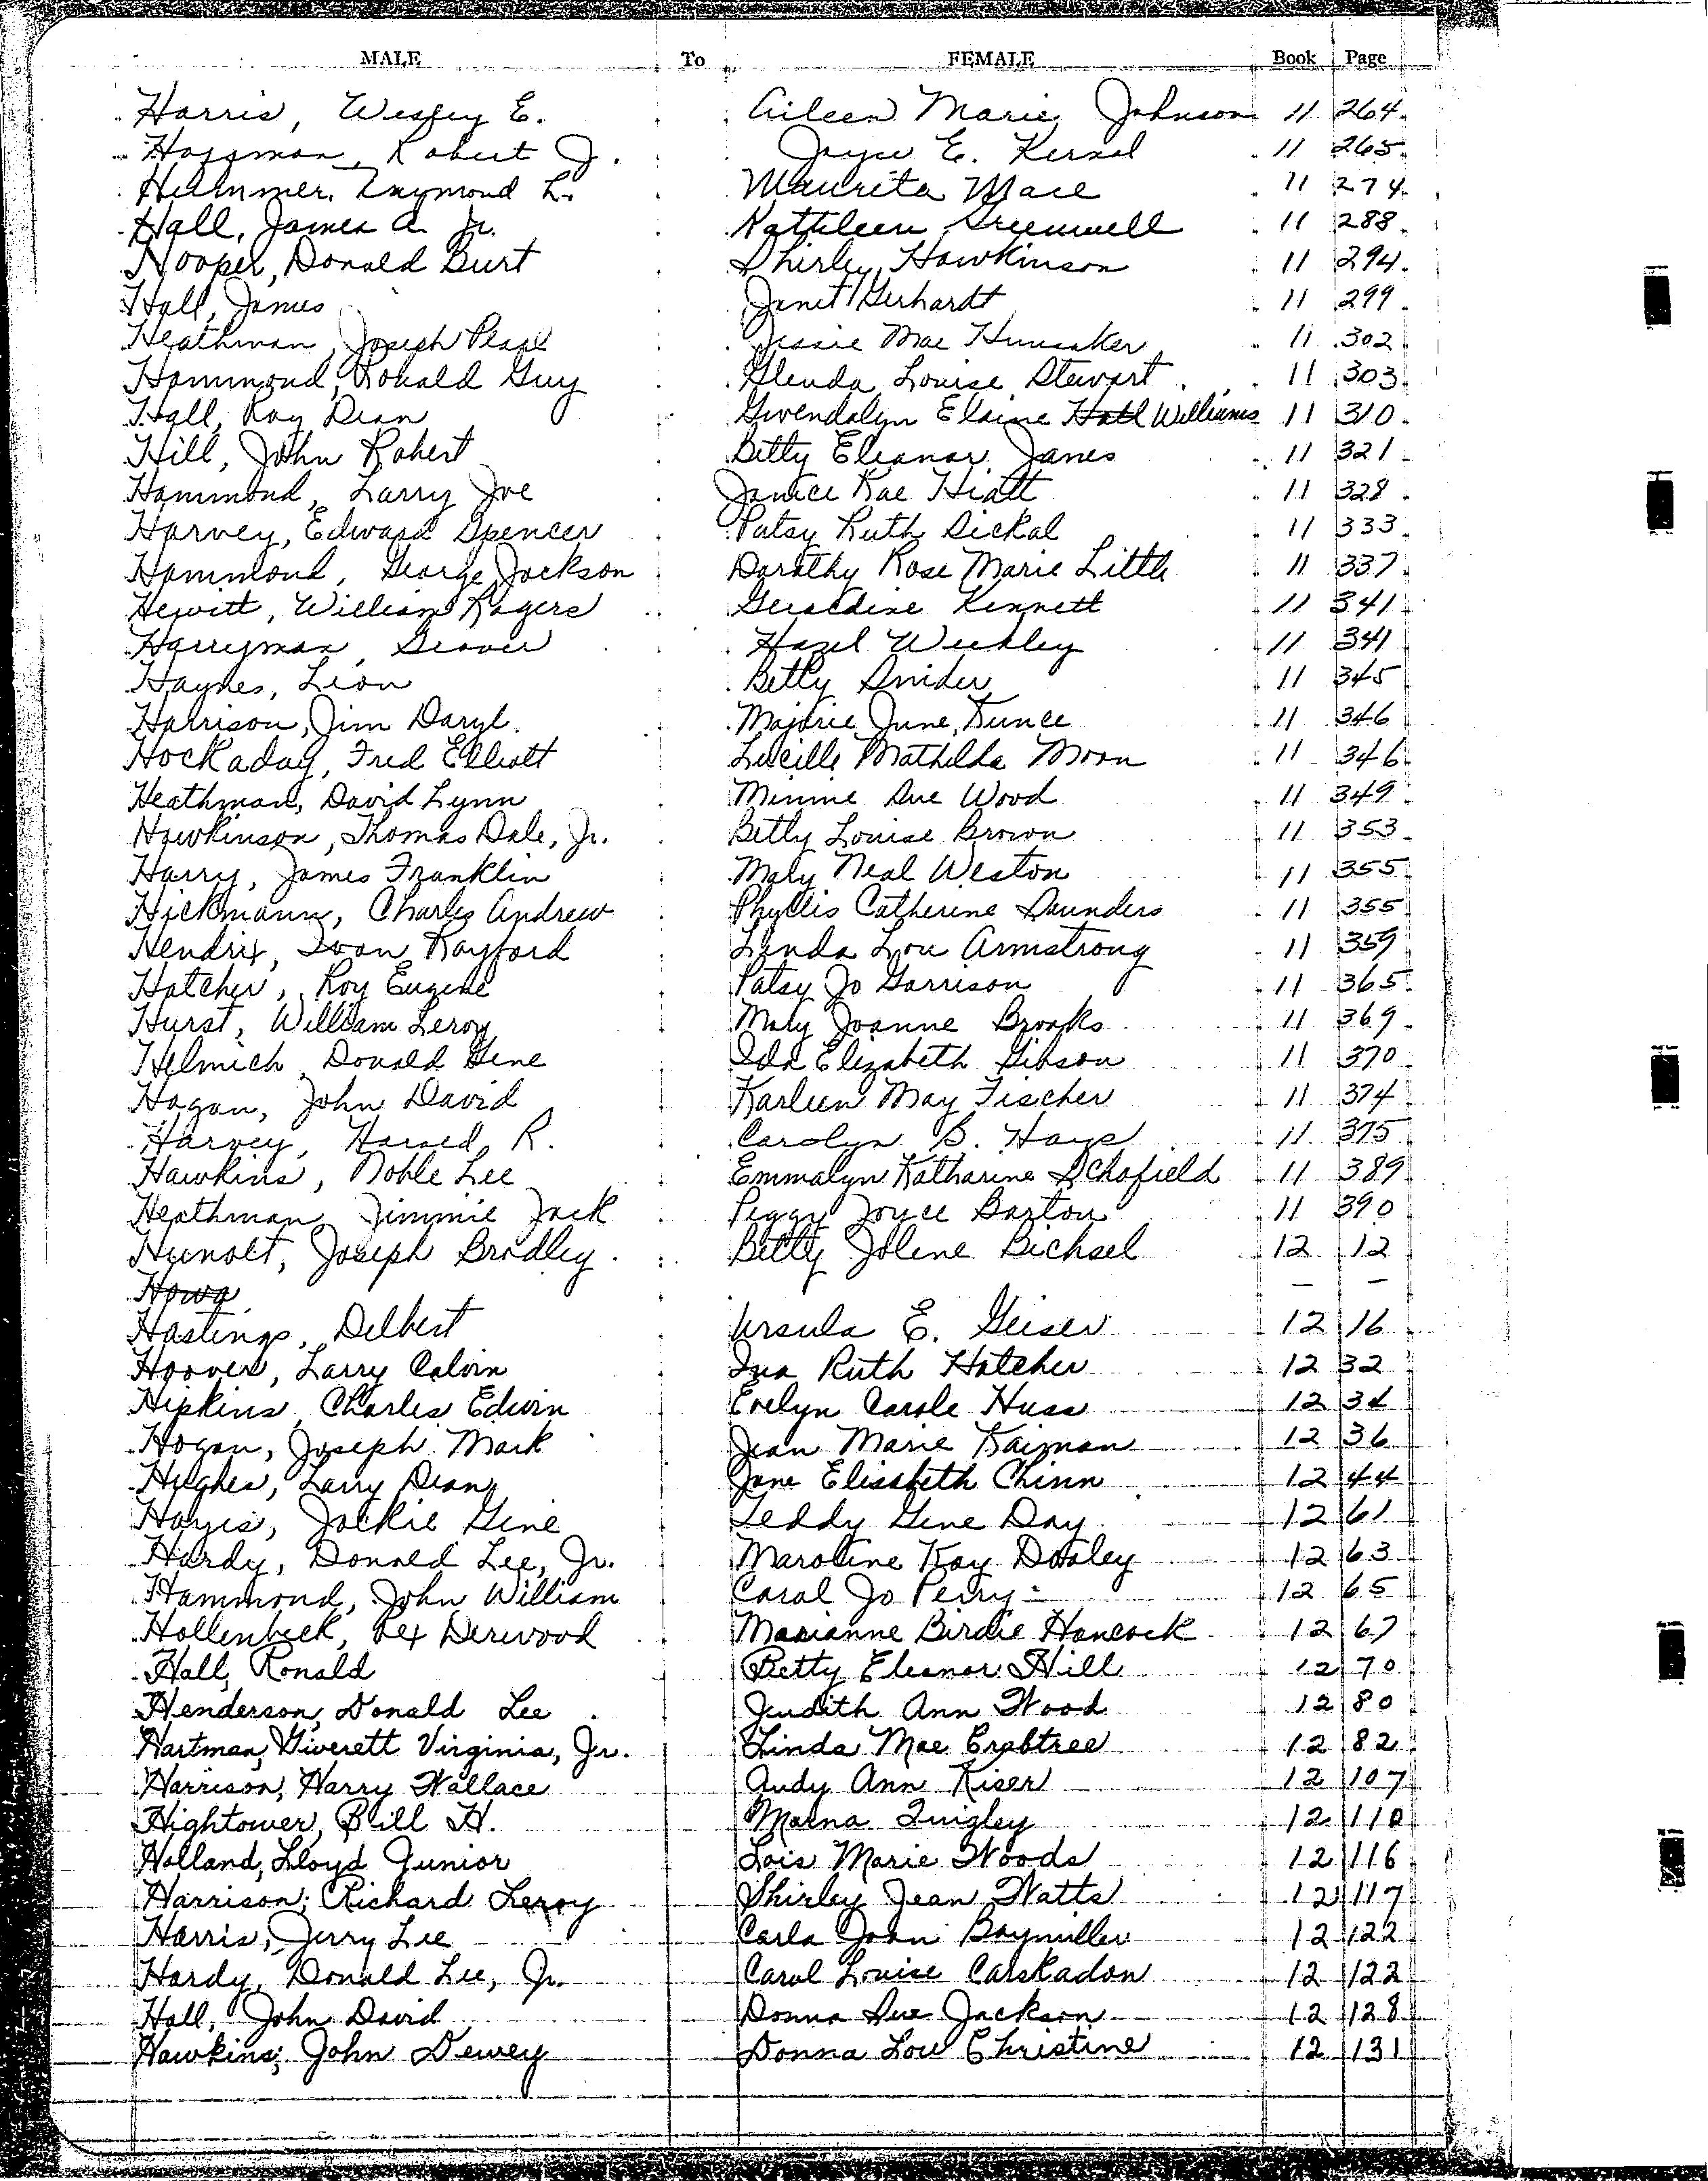 MALE To FEMALE Book Page
Harris, Wesley E. Aileen Marie Johnson 11 264
Hassman, Robert J. Joyce E. Kernal 11 265
Hummer, Raymond L. Maurita Mace 11 274
Hall, James A. Jr. Kathleen Greenwell 11 288
Hooper, Donald Burt Shirley Hawkinson 11 294
Hall, James Janet Gerhardt 11 299
Heathman, Joseph Pearl Jessie Mae Hunsaker 11 302
Hammond, Ronald Guy Glenda Louise Stewart 11 303
Hall, Roy Dean Gwendolyn Elaine Hall Williams 11 310
Hill, John Robert Betty Eleanor Janes 11 321
Hammond, Larry Joe Janice Rae Hiatt 11 328
Harvey, Edward Spencer Patsy Ruth Sickal 11 333
Hammond, George Jackson Dorothy Rose Marie Little 11 337
Hewitt, William Rogers Geraldine Kennett 11 341
Harryman, Grover Hazel Weekley 11 341
Haynes, Leon Betty Snider 11 345
Harrison, Jim Daryl Majorie June Kunce 11 346
Hockaday, Fred Elliott Lucille Mathilda Moon 11 346
Heathman, David Lynn Minnie Sue Wood 11 349
Hawkinson, Thomas Dale, Jr. Betty Louise Brown 11 353
Harry, James Franklin Mary Neal Weston 11 355
Hickmann, Charles Andrew Phyllis Catherine Saunders 11 355
Hendrix, Ivan Rayford Linda Lou Armstrong 11 359
Hatcher, Roy Eugene Patsy Jo Garrison 11 365
Hurst, William Leroy Mary Joanne Brooks 11 369
Helmich, Donald Gene Ida Elizabeth Gibson 11 370
Hagan, John David Karleen May Fischer 11 374
Harvey, Harold R. Carolyn B. Hays 11 375
Hawkins, Noble Lee Emmalyn Katharine Schofield 11 389
Heathman, Jimmie Jack Peggy Joyce Barton 11 390
Hunolt, Joseph Bradley Betty Jolene Bichsel 12 12
Howa — —
Hastings, Delbert Ursula E. Geiser 12 16
Hoover, Larry Calvin Iva Ruth Hatcher 12 32
Hipkins, Charles Edwin Evelyn Carole Huss 12 34
Hogan, Joseph Mark Jean Marie Kaizman 12 36
Hughes, Larry Dean Jane Elisabeth Chinn 12 44
Hayes, Jackie Gene Teddy Gene Day 12 61
Hardy, Donald Lee, Jr. Maroline Kay Dooley 12 63
Hammond, John William Carol Jo Perry 12 65
Hollenbeck, Rex Derwood Marianne Birdie Hancock 12 67
Hall, Ronald Betty Eleanor Hill 12 70
Henderson, Donald Lee Judith Ann Wood 12 80
Hartman, Giverett Virginia, Jr. Linda Mae Crabtree 12 82
Harrison, Harry Wallace Judy Ann Kiser 12 107
Hightower, Bill H. Marna Quigley 12 110
Holland, Lloyd Junior Lois Marie Woods 12 116
Harrison, Richard Leroy Shirley Jean Watts 12 117
Harris, Jerry Lee Carla Joan Baymiller 12 122
Hardy, Donald Lee, Jr. Carol Louise Carskadon 12 122
Hall, John David Donna Sue Jackson 12 128
Hawkins, John Dewey Donna Lou Christine 12 131